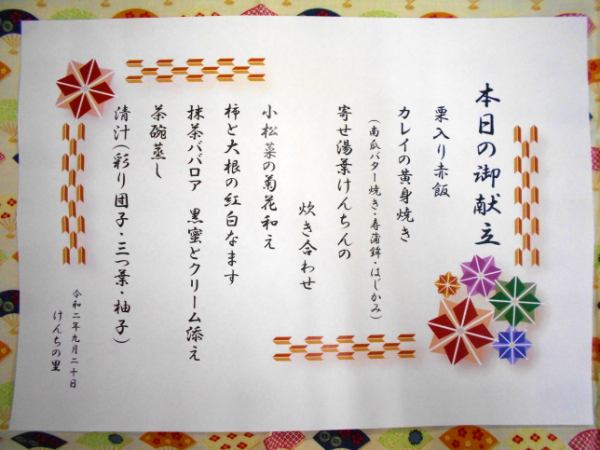 本日の御献立
栗入り赤飯
カレイの黄身焼き
(南瓜バター焼き・寿蒲鉾・はじかみ)
寄せ湯葉けんちんの
炊き合わせ
小松菜の菊花和え
柿と大根の紅白なます
抹茶ババロア 黒蜜とクリーム添え
茶碗蒸し
清汁(彩り団子・三つ葉・柚子)
令和二年九月二十日
けんちの里